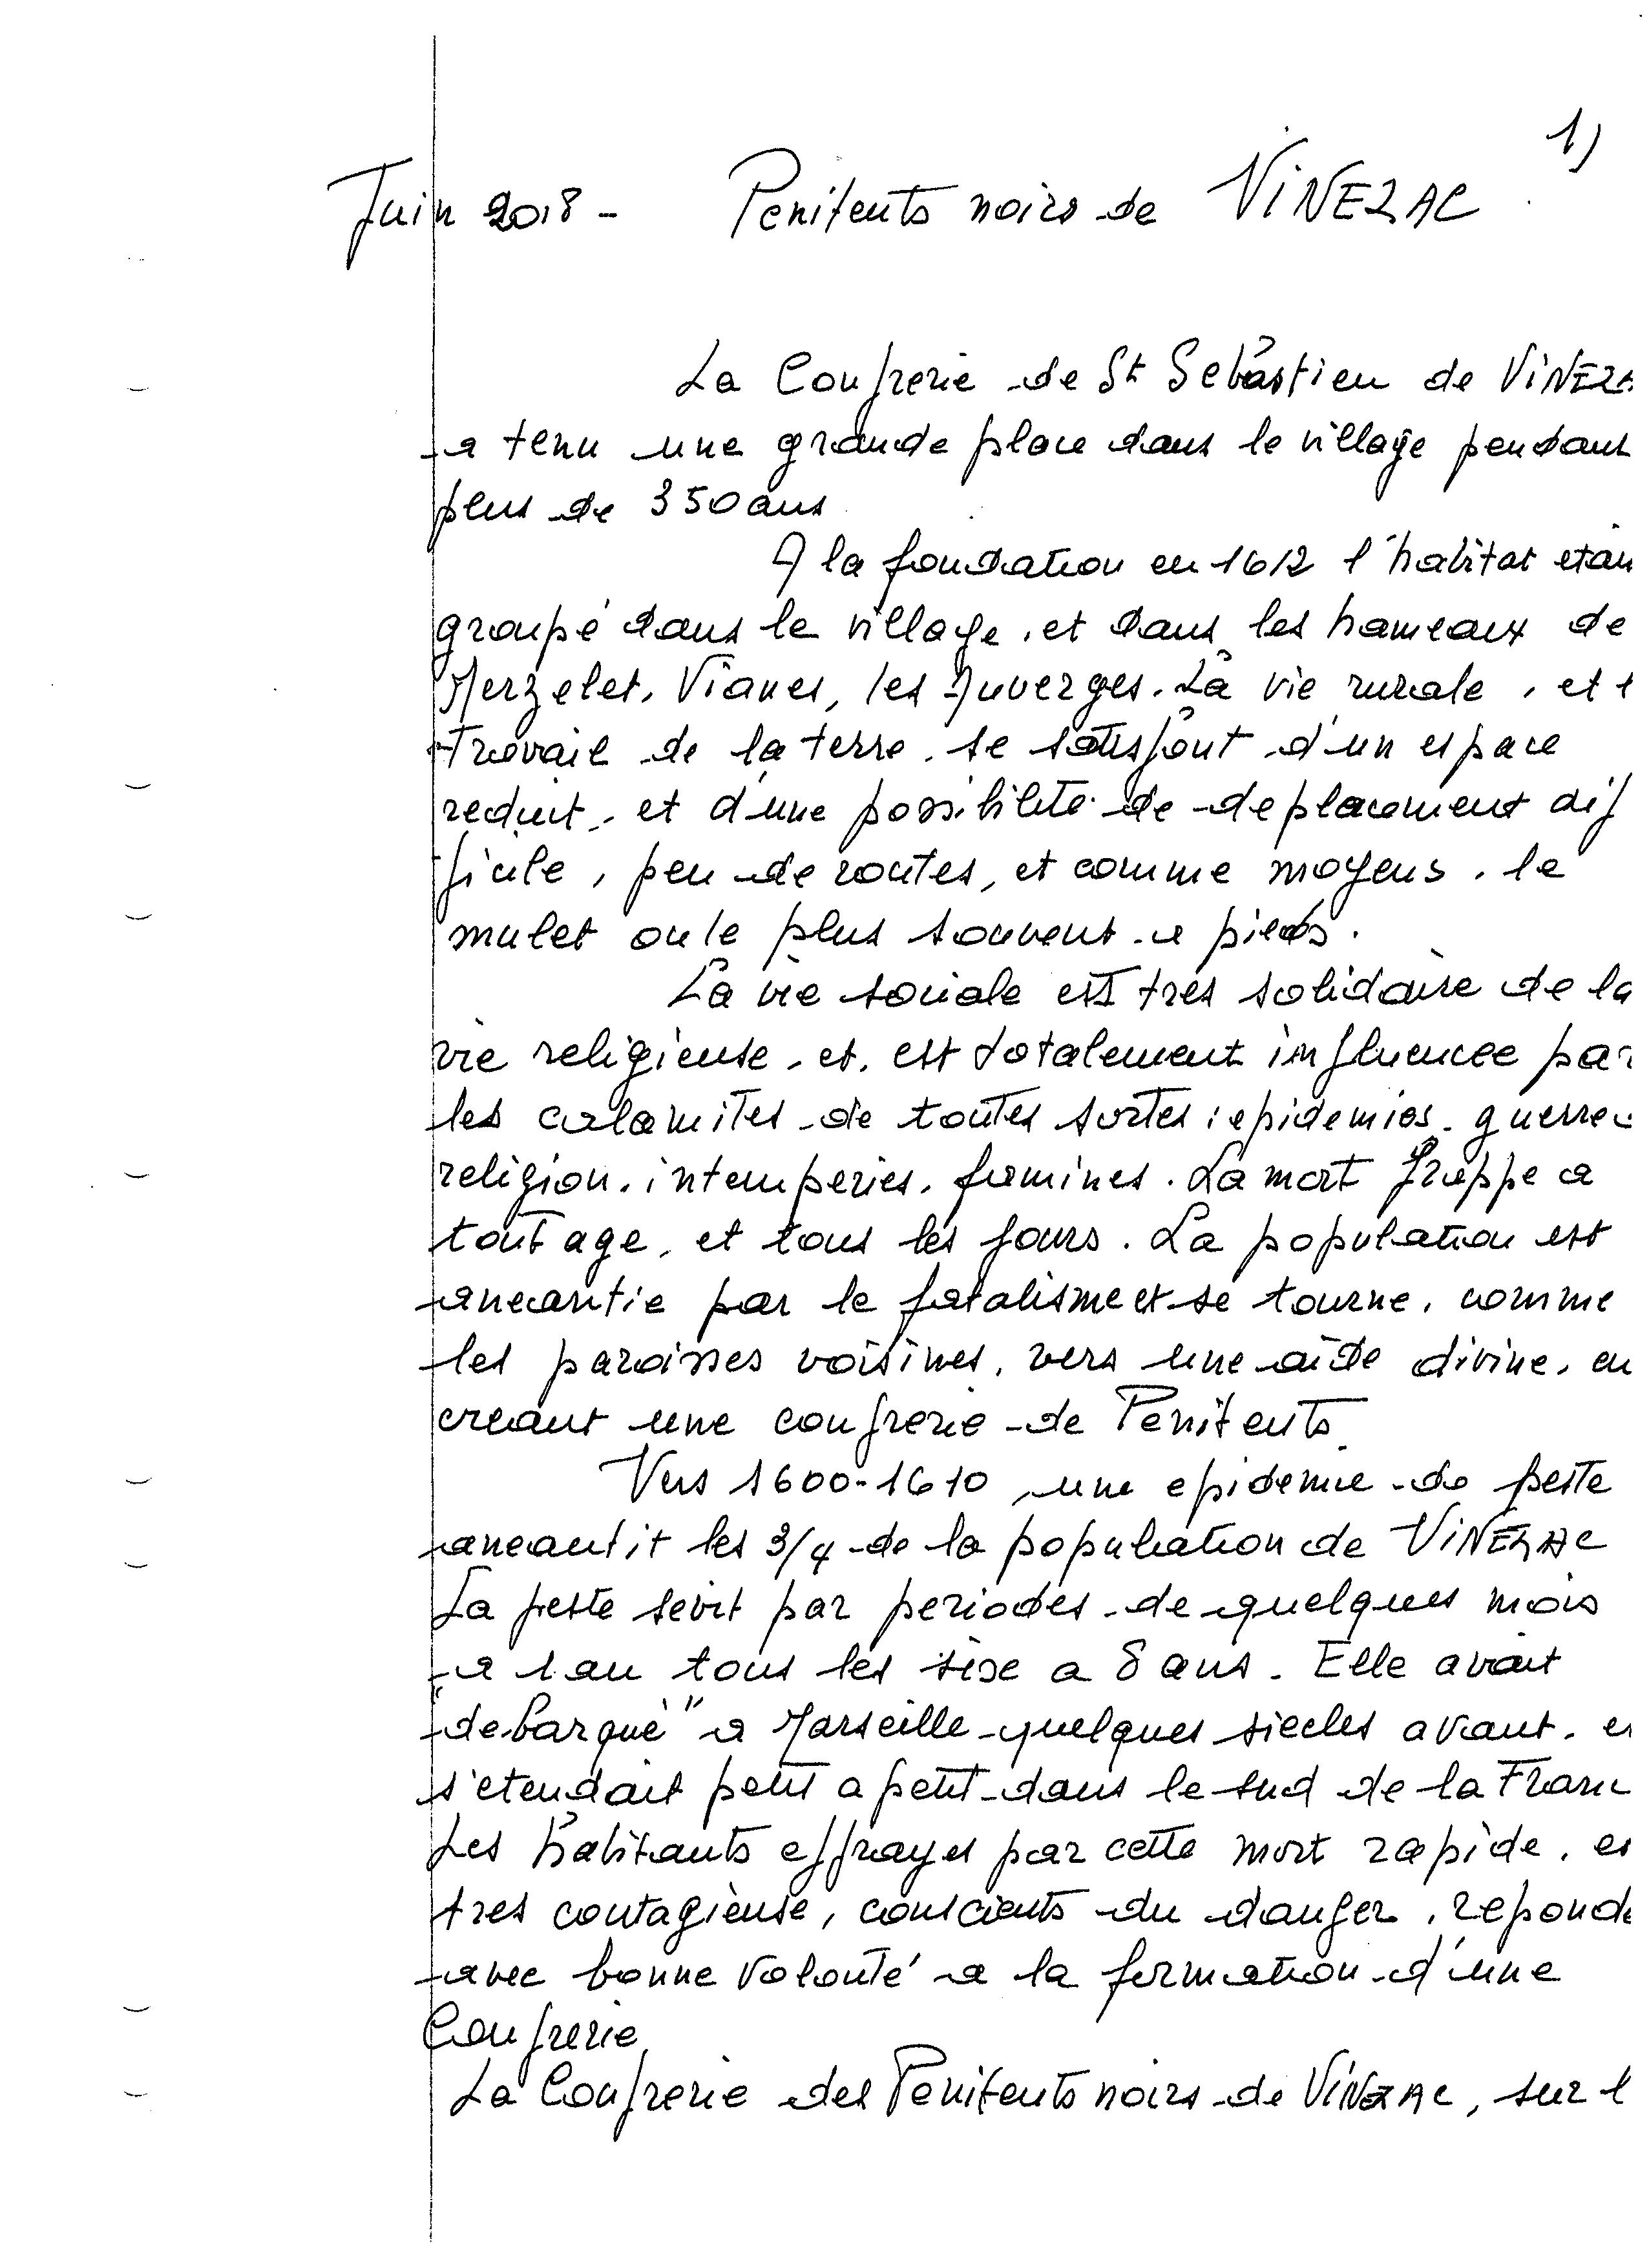 1)
Juin 2018 - Penitents noirs de ViNEZAC
La Confrerie de St Sebastien de ViNEZA
a tenu une grande place dans le village pendant
plus de 350 ans
A la fondation en 1612 l'habitat etan
groupé dans le village, et dans les hameaux de
Merzelet, Vianes, les Auverges. La vie rurale, et l
travail de la terre, se satisfont d'un espace
reduit, et d'une possibilité de deplacement dif
ficile, peu de routes, et comme moyens, le
mulet ou le plus souvent a pieds.
La vie sociale est tres solidaire de la
vie religieuse, et, est totalement influencee par
les calamites de toutes sortes : epidemies, guerre
religion, intemperies, famines. La mort frappe a
tout age, et tous les jours. La population est
aneantie par le fatalisme et se tourne, comme
les paroisses voisines, vers une aide divine, en
creant une confrerie de Penitents.
Vers 1600-1610, une epidemie de peste
aneantit les 3/4 de la population de ViNEZAC
La peste sevit par periodes de quelques mois
a 1 an tous les sixe a 8 ans. Elle avait
"debarqué" a Marseille quelques siecles avant, e
s'etendait petit a petit dans le sud de la Franc
Les habitants effrayes par cette mort rapide, e
tres contagieuse, conscients du danger, reponde
avec bonne volonté a la formation d'une
Confrerie
La Confrerie des Penitents noirs de ViNEZAC, sur l